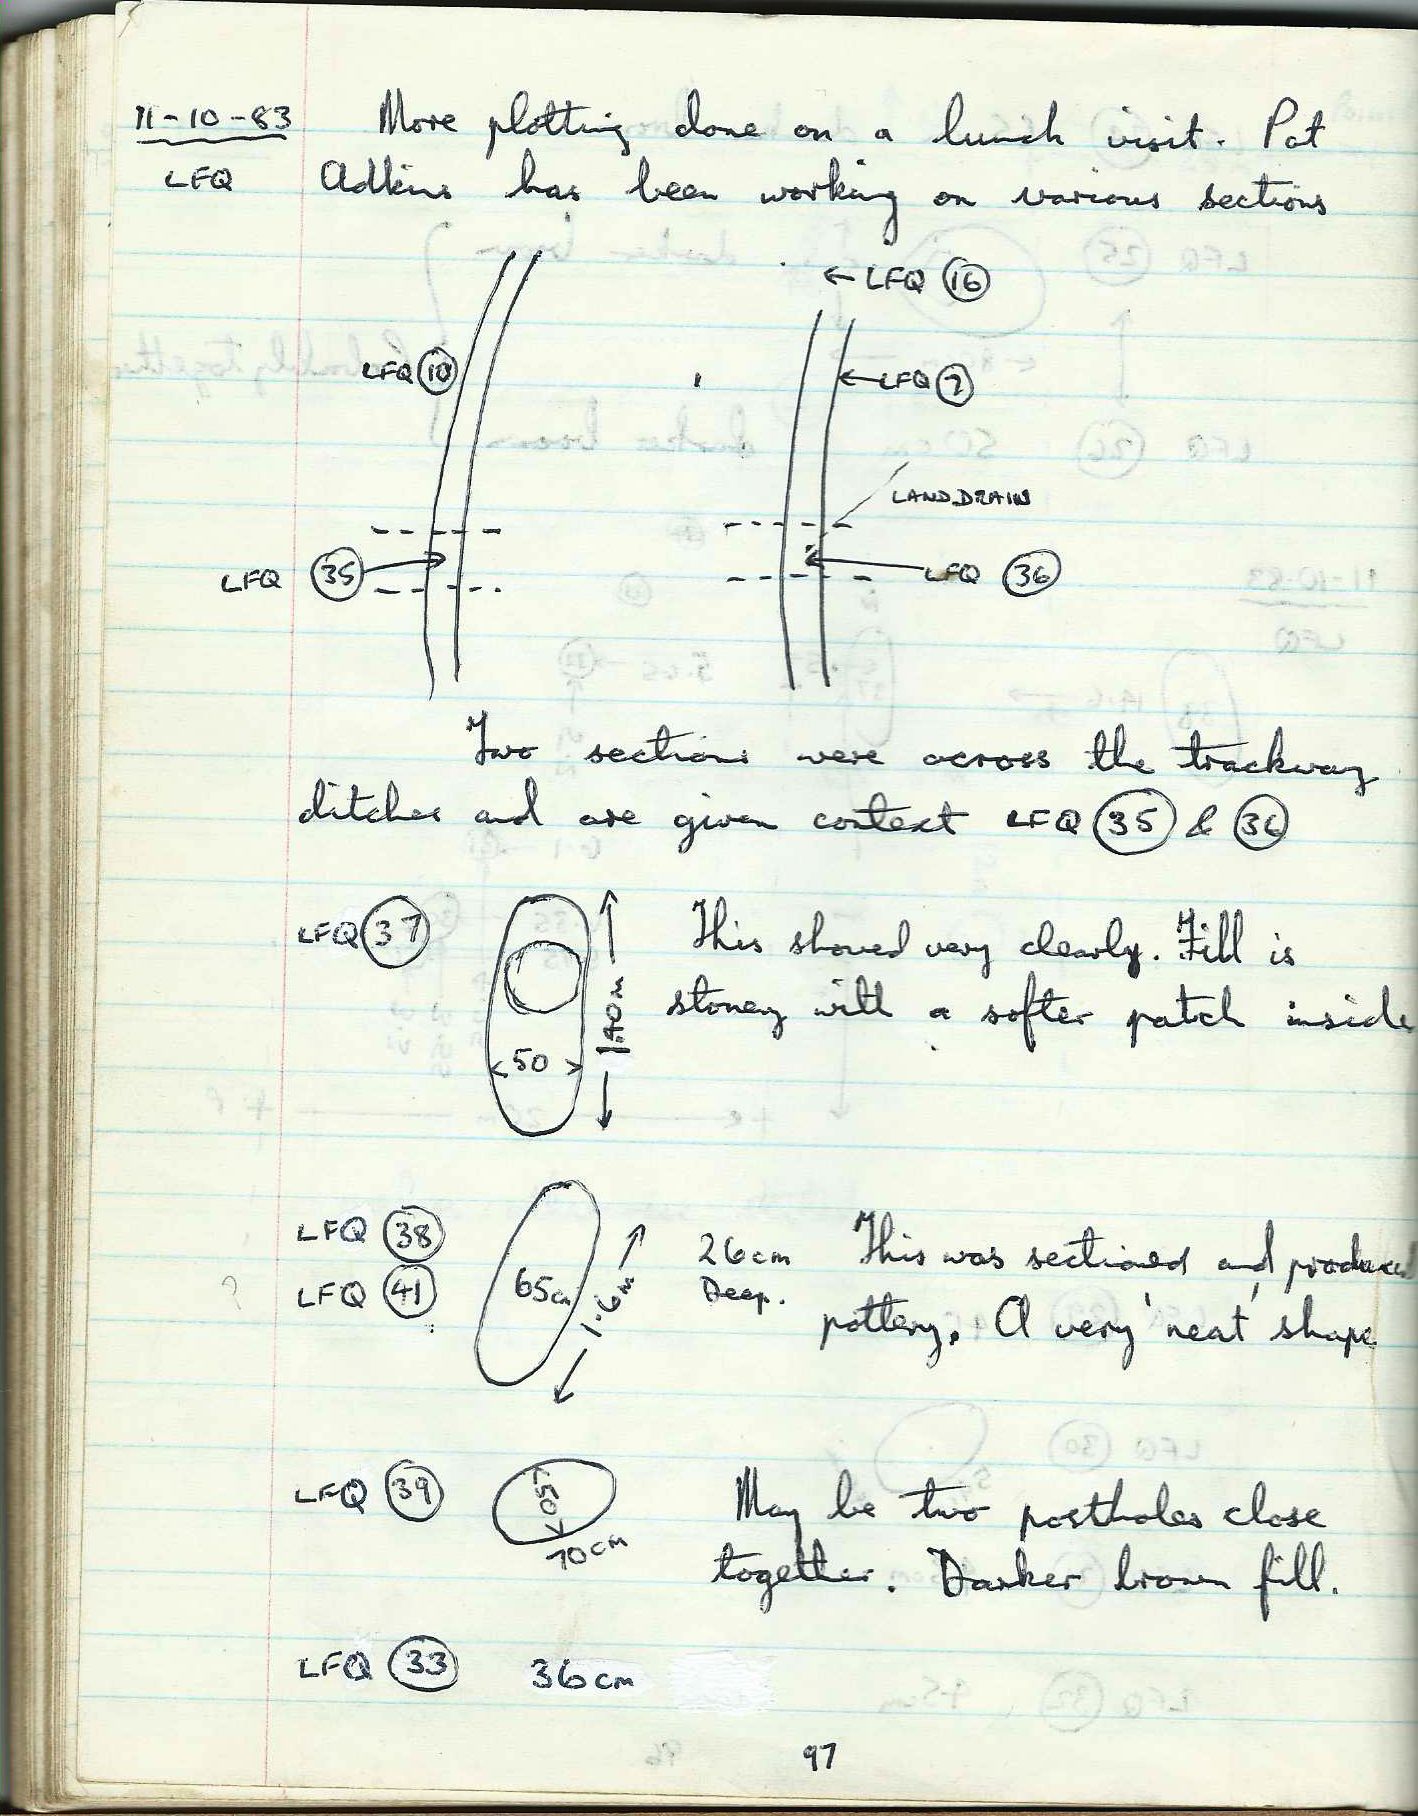 11-10-83 More plotting done on a lunch visit. Pat
LFQ Adkins has been working on various sections
← LFQ 16
LFQ 10
← LFQ 7
LAND DRAIN
LFQ 35
LFQ 36
Two sections were across the trackway
ditches and are given context LFQ 35 & 36
LFQ 37 This showed very clearly. Fill is
stoney with a softer patch inside
50
1.40m
LFQ 38 26cm This was sectioned and produced
? LFQ 41 65cm 1.6m Deep. pottery. A very neat shape
LFQ 39 50 May be two postholes close
70cm together. Darker brown fill.
LFQ 33 36cm
97